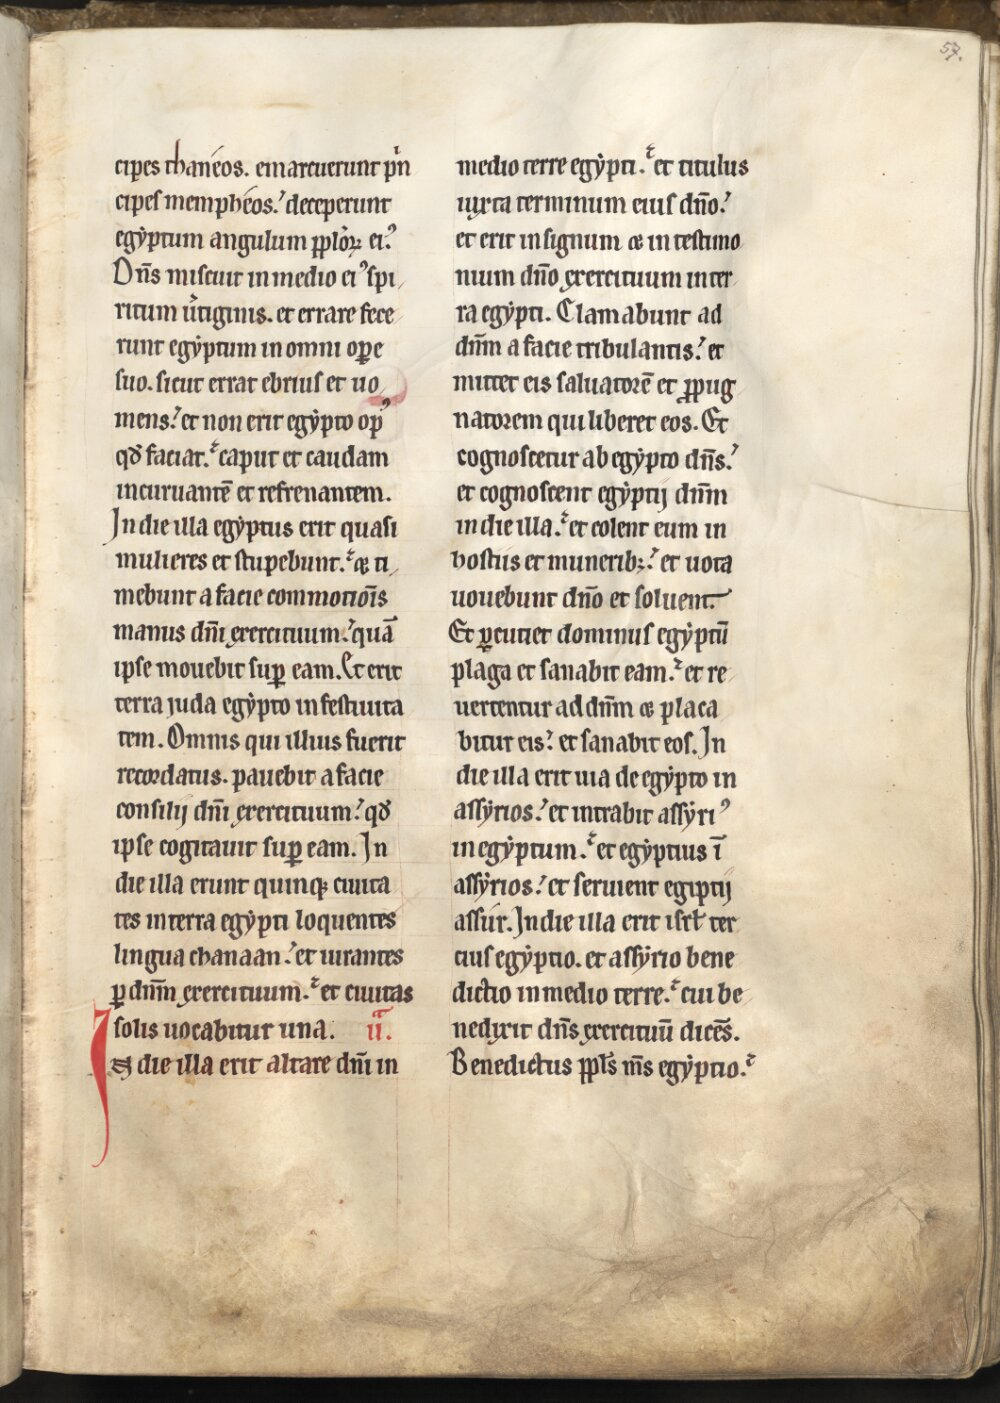 57.
cipes thaneos. emarcuerunt p̍n
cipes mempheos. deceperunt
egẏptum angulum pp̄loꝝ eiꝰ
Dn̄s miscuit in medio eiꝰ spi
ritum u̍tiginis. et errare fece
runt egẏptum in omni oꝑe
suo. sicut errat ebrius et uo
mens. et non erit egẏpto opꝰ
qd̄ faciat. caput et caudam
incuruantē et refrenantem.
In die illa egẏptus erit quasi
mulieres et stupebunt. ⁊ ti
mebunt a facie commotiōis
manus dn̄i exercituum. quā
ipse mouebit suꝑ eam. Et erit
terra juda egẏpto in festiuita
tem. Omnis qui illius fuerit
recordatus. pauebit a facie
consilij dn̄i exercituum. qd̄
ipse cogitauit suꝑ eam. In
die illa erunt quinqꝫ ciuita
tes in terra egẏpti loquentes
lingua chanaan. et iurantes
ꝑ dn̄m exercituum. et ciuitas
solis uocabitur una. ii.
In die illa erit altare dn̄i in
medio terre egẏpti. et titulus
iuxta terminum eius dn̄o.
et erit in signum ⁊ in testimo
nium dn̄o exercituum in ter
ra egẏpti. Clamabunt ad
dn̄m a facie tribulantis. et
mittet eis saluatorē et ꝓpug
natorem qui liberet eos. Et
cognoscetur ab egẏpto dn̄s.
et cognoscent egẏptij dn̄m
in die illa. et colent eum in
hostiis et munerib; et uota
uouebunt dn̄o et soluent.
Et ꝑcutiet dominus egẏptū
plaga et sanabit eam. et re
uertentur ad dn̄m ⁊ placa
bitur eis. et sanabit eos. In
die illa erit uia de egẏpto in
assẏrios. et intrabit assẏriꝰ
in egẏptum. et egẏptius ī
assẏrios. et seruient egiptij
assur. In die illa erit isrl̄ ter
tius egẏptio. et assẏrio bene
dictio in medio terre. cui be
nedixit dn̄s exercituū dicēs.
Benedictus pp̄ls m̄s egẏptio.